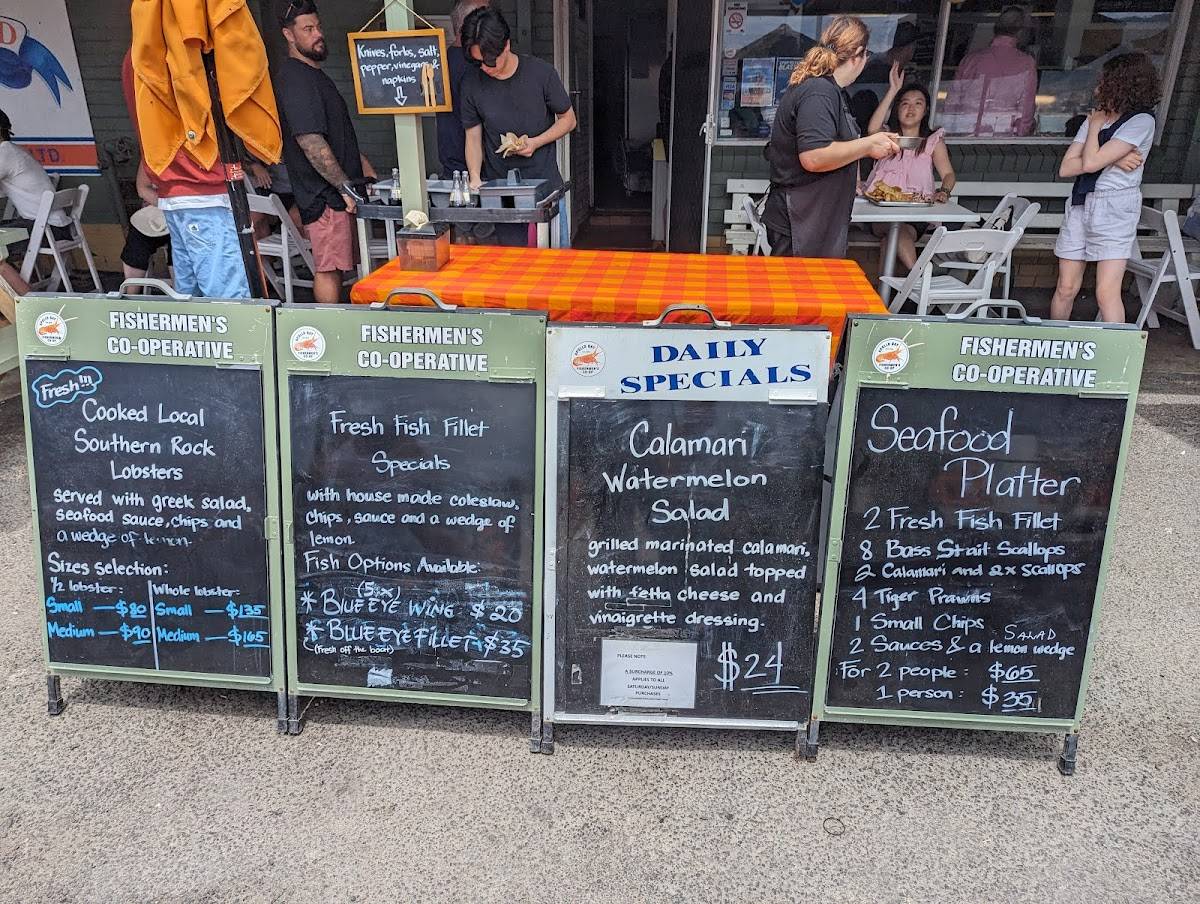 D
LTD.
Knives, forks, salt,
pepper, vinegar &
napkins
FISHERMEN'S
CO-OPERATIVE
Fresh!!!
Cooked Local
Southern Rock
Lobsters
served with greek salad,
seafood sauce, chips and
a wedge of lemon.
Sizes selection:
1/2 lobster:
Small — $80
Medium — $90
Whole lobster:
Small — $135
Medium — $165
FISHERMEN'S
CO-OPERATIVE
Fresh Fish Fillet
Specials
with house made coleslaw,
chips, sauce and a wedge of
lemon
Fish Options Available:
* BLUE EYE WING $20
* BLUE EYE FILLET - $35
(fresh off the boat)
DAILY
SPECIALS
Calamari
Watermelon
Salad
grilled marinated calamari,
watermelon salad topped
with fetta cheese and
vinaigrette dressing.
PLEASE NOTE:
A SURCHARGE OF 10%
APPLIES TO ALL
SATURDAY/SUNDAY
PURCHASES
$24
FISHERMEN'S
CO-OPERATIVE
Seafood
Platter
2 Fresh Fish Fillet
8 Bass Strait Scallops
2 Calamari and 2x Scallops
4 Tiger Prawns
1 Small Chips SALAD
2 Sauces & a lemon wedge
For 2 people: $65
1 person: $35